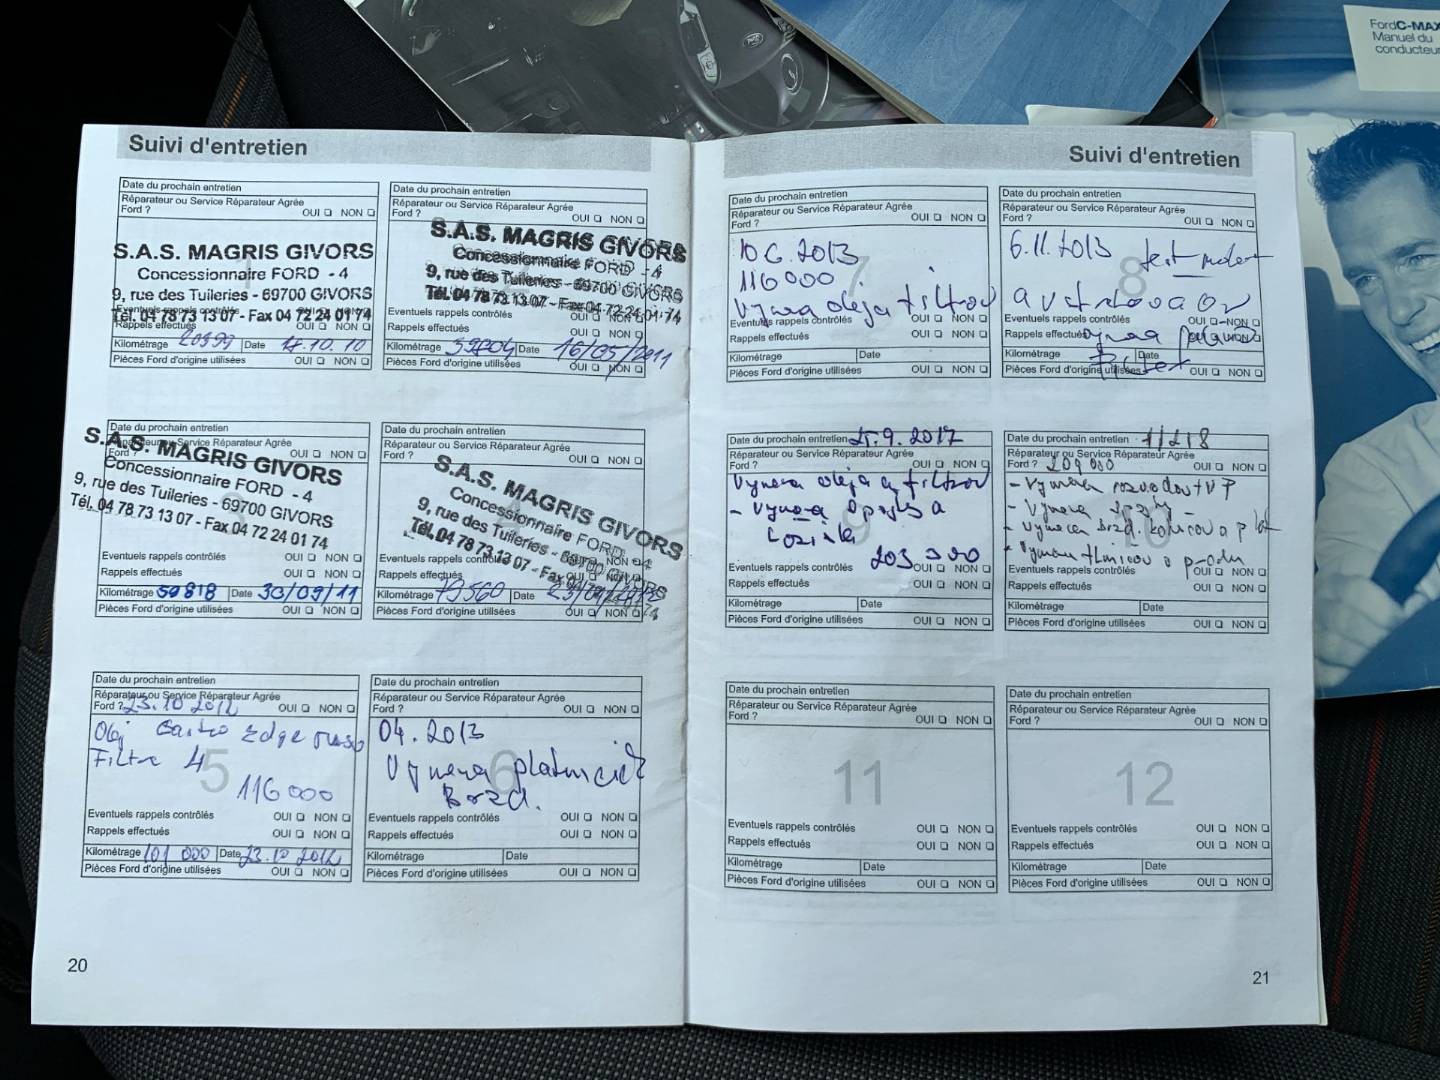 FordC-MAX
Manuel du
conducteur
Suivi d'entretien
Date du prochain entretien
Réparateur ou Service Réparateur Agrée
Ford ? OUI NON
1
S.A.S. MAGRIS GIVORS
Concessionnaire FORD - 4
9, rue des Tuileries - 69700 GIVORS
Tél. 04 78 73 13 07 - Fax 04 72 24 01 74
Eventuels rappels contrôlés OUI NON
Rappels effectués OUI NON
Kilométrage 20899 Date 18.10.10
Pièces Ford d'origine utilisées OUI NON
Date du prochain entretien
Réparateur ou Service Réparateur Agrée
Ford ? OUI NON
S.A.S. MAGRIS GIVORS
Concessionnaire FORD - 4
9, rue des Tuileries - 69700 GIVORS
Tél. 04 78 73 13 07 - Fax 04 72 24 01 74
Eventuels rappels contrôlés OUI NON
Rappels effectués OUI NON
Kilométrage Date 16/05/2011
Pièces Ford d'origine utilisées OUI NON
Date du prochain entretien
Réparateur ou Service Réparateur Agrée
Ford ? OUI NON
3
S.A.S. MAGRIS GIVORS
Concessionnaire FORD - 4
9, rue des Tuileries - 69700 GIVORS
Tél. 04 78 73 13 07 - Fax 04 72 24 01 74
Eventuels rappels contrôlés OUI NON
Rappels effectués OUI NON
Kilométrage 59818 Date 30/09/11
Pièces Ford d'origine utilisées OUI NON
Date du prochain entretien
Réparateur ou Service Réparateur Agrée
Ford ? OUI NON
4
S.A.S. MAGRIS GIVORS
Concessionnaire FORD - 4
9, rue des Tuileries - 69700 GIVORS
Tél. 04 78 73 13 07 - Fax 04 72 24 01 74
Eventuels rappels contrôlés OUI NON
Rappels effectués OUI NON
Kilométrage 79560 Date
Pièces Ford d'origine utilisées OUI NON
Date du prochain entretien
Réparateur ou Service Réparateur Agrée
Ford ? 23.10 2012 OUI NON
5
Olej Edge
Filtre 4
116 000
Eventuels rappels contrôlés OUI NON
Rappels effectués OUI NON
Kilométrage 101 000 Date 23.10 2012
Pièces Ford d'origine utilisées OUI NON
Date du prochain entretien
Réparateur ou Service Réparateur Agrée
Ford ? OUI NON
6
04. 2013
Vymena platniciek
Brzd.
Eventuels rappels contrôlés OUI NON
Rappels effectués OUI NON
Kilométrage Date
Pièces Ford d'origine utilisées OUI NON
20
Suivi d'entretien
Date du prochain entretien
Réparateur ou Service Réparateur Agrée
Ford ? OUI NON
7
10 6. 2013
116 000
Vymena oleja filtrov
Eventuels rappels contrôlés OUI NON
Rappels effectués OUI NON
Kilométrage Date
Pièces Ford d'origine utilisées OUI NON
Date du prochain entretien
Réparateur ou Service Réparateur Agrée
Ford ? OUI NON
8
6.11.2013
Eventuels rappels contrôlés OUI NON
Rappels effectués
Kilométrage Date
Pièces Ford d'origine utilisées OUI NON
Date du prochain entretien 25.9.2017
Réparateur ou Service Réparateur Agrée
Ford ? OUI NON
9
Vymena oleja a filtrov
- Vymena a
Loziska
Eventuels rappels contrôlés 203 000 OUI NON
Rappels effectués OUI NON
Kilométrage Date
Pièces Ford d'origine utilisées OUI NON
Date du prochain entretien
Réparateur ou Service Réparateur Agrée
Ford ? 209 000 OUI NON
10
- Vymena rozvodov + VP
- Vymena
- Vymena brzd. kotucov a plat
Eventuels rappels contrôlés OUI NON
Rappels effectués OUI NON
Kilométrage Date
Pièces Ford d'origine utilisées OUI NON
Date du prochain entretien
Réparateur ou Service Réparateur Agrée
Ford ? OUI NON
11
Eventuels rappels contrôlés OUI NON
Rappels effectués OUI NON
Kilométrage Date
Pièces Ford d'origine utilisées OUI NON
Date du prochain entretien
Réparateur ou Service Réparateur Agrée
Ford ? OUI NON
12
Eventuels rappels contrôlés OUI NON
Rappels effectués OUI NON
Kilométrage Date
Pièces Ford d'origine utilisées OUI NON
21